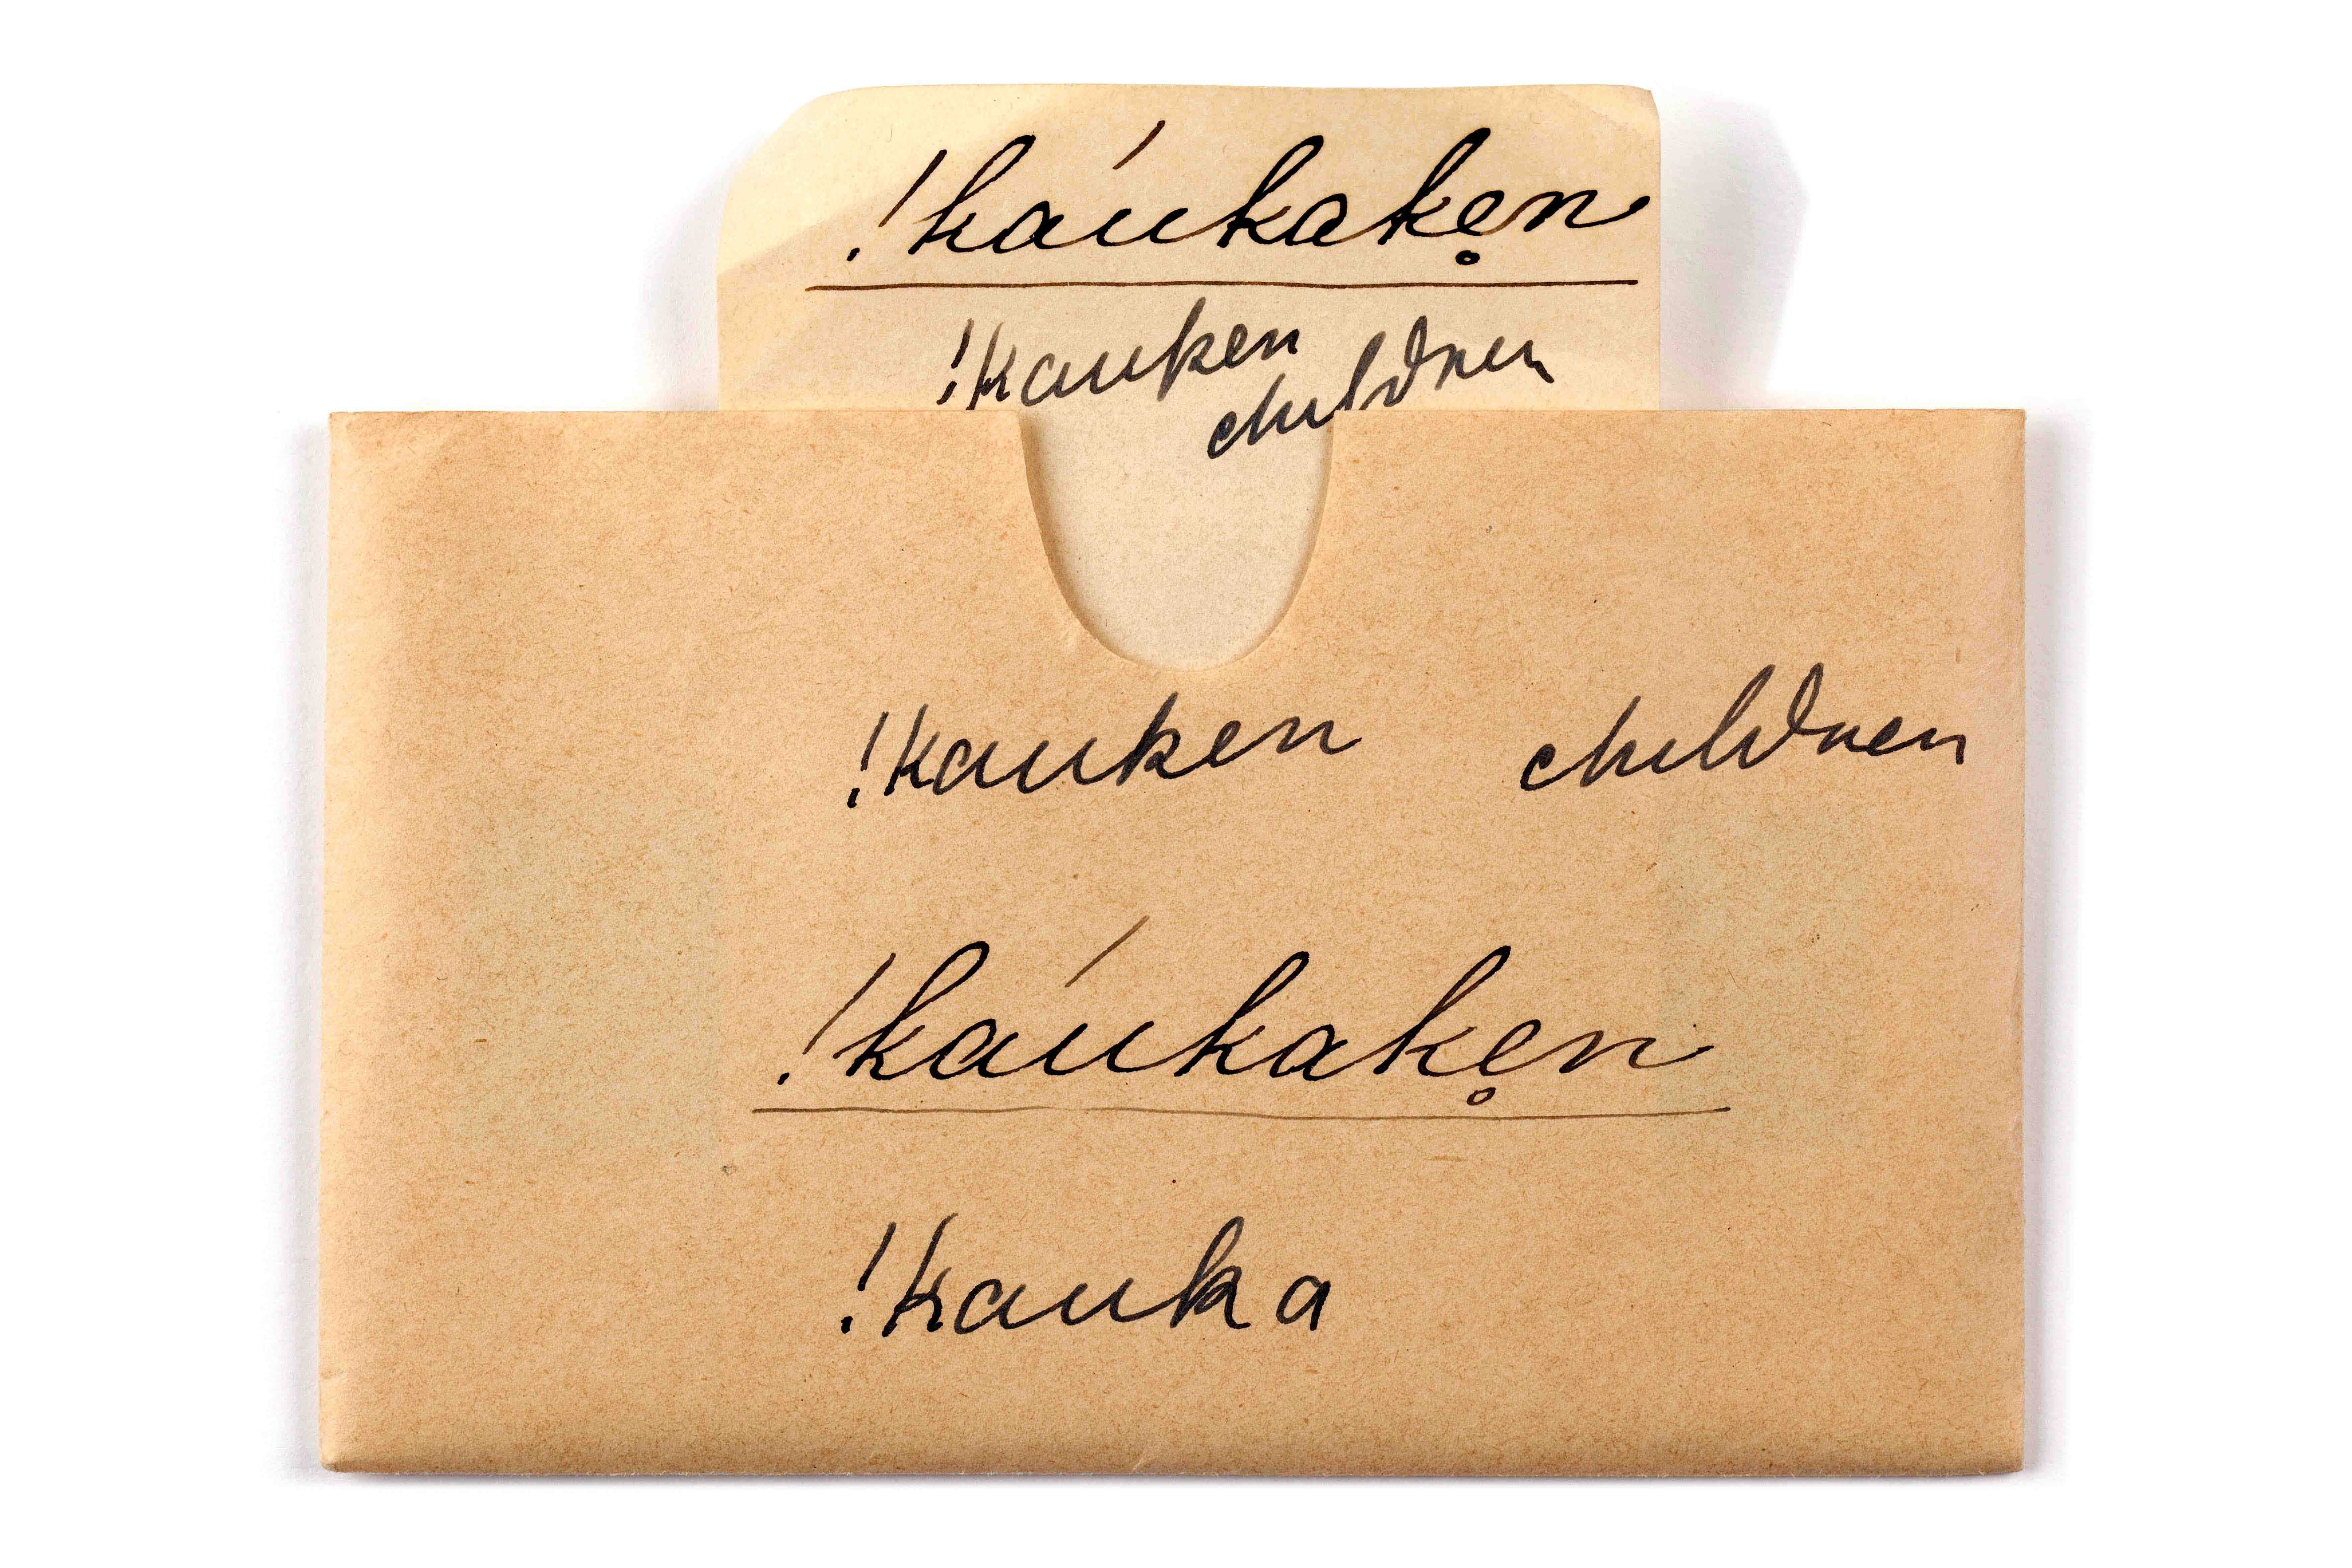 !kaúkakẹn
!kauken
children
!kauken children
!kaúkakẹn
!kauka